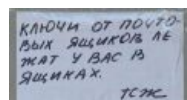 КЛЮЧИ ОТ ПОЧТО-
ВЫХ ЯЩИКОВ ЛЕ
ЖАТ У ВАС В
ЯЩИКАХ.
ТСЖ